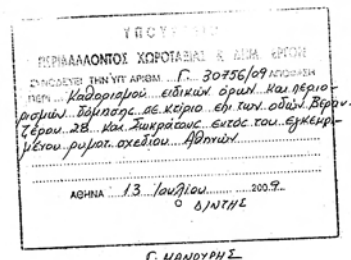 ΥΠΟΥΡΓΕΙΟ
ΠΕΡΙΒΑΛΛΟΝΤΟΣ ΧΩΡΟΤΑΞΙΑΣ & ΔΗΜ. ΕΡΓΩΝ
ΣΥΝΟΔΕΥΕΙ ΤΗΝ ΥΠ' ΑΡΙΘΜ. Γ. 30756/09 ΑΠΟΦΑΣΗ
ΠΕΡΙ Καθορισμού ειδικών όρων και περιο-
ρισμών δόμησης σε κτίριο επί των οδών Βεραν-
τζέρου 28 και Σωκράτους εντός του εγκεκρι-
μένου ρυμοτ. σχεδίου Αθηνών
ΑΘΗΝΑ 13 Ιουλίου 2009
Ο Δ/ΝΤΗΣ
Γ. ΜΑΝΟΥΡΗΣ